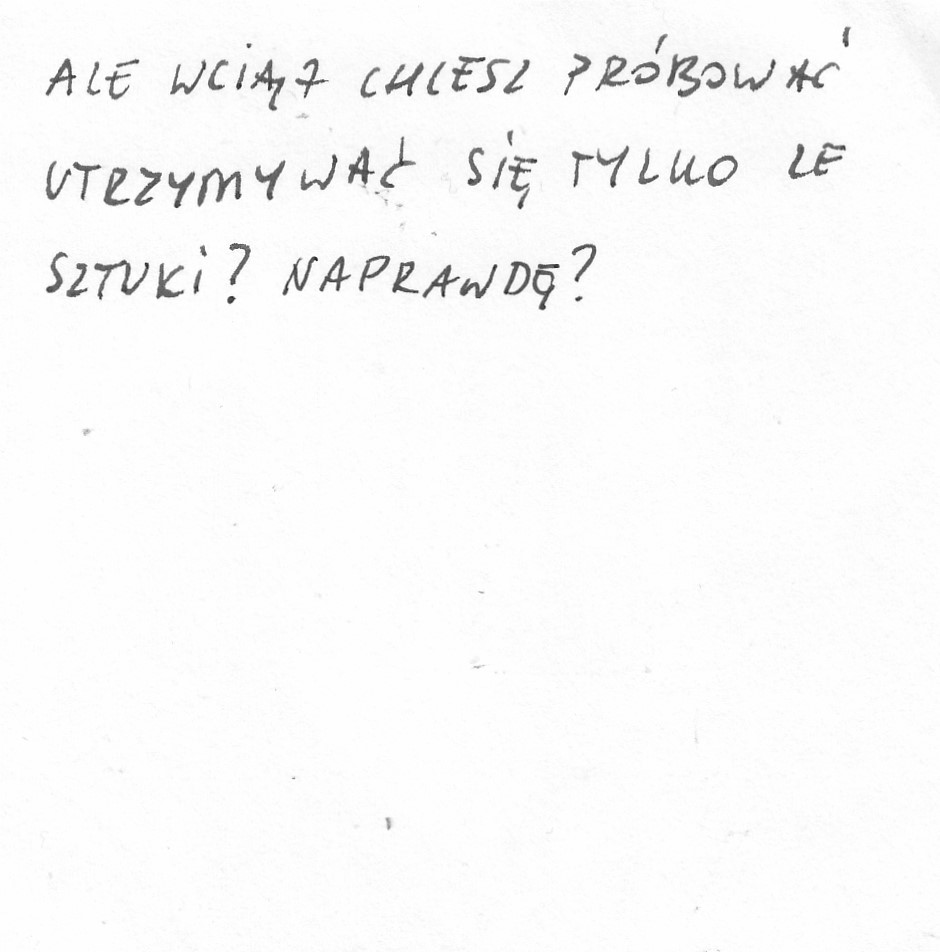 ALE WCIĄŻ CHCESZ PRÓBOWAĆ
UTRZYMYWAĆ SIĘ TYLKO ZE
SZTUKI? NAPRAWDĘ?